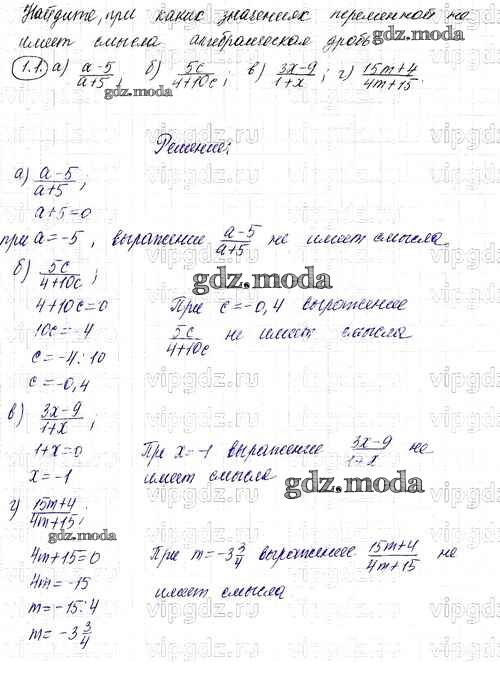 Найдите, при каких значениях переменной не
имеет смысла алгебраическая дробь
1.1. а) (a-5)/(a+5); б) 5c/(4+10c); в) (3x-9)/(1+x); г) (15m+4)/(4m+15).
gdz.moda
gdz.moda
Решение:
а) (a-5)/(a+5);
a+5=0
при a=-5, выражение (a-5)/(a+5) не имеет смысла
б) 5c/(4+10c);
gdz.moda
4+10c=0 При c=-0,4 выражение
10c=-4 5c/(4+10c) не имеет смысла
c=-4:10
c=-0,4
в) (3x-9)/(1+x);
1+x=0 При x=-1 выражение (3x-9)/(1+x) не
x=-1 имеет смысла
gdz.moda
г) (15m+4)/(4m+15);
gdz.moda
4m+15=0 При m=-3 3/4 выражение (15m+4)/(4m+15) не
4m=-15 имеет смысла
m=-15:4
m=-3 3/4
gdz.moda
vipgdz.ru